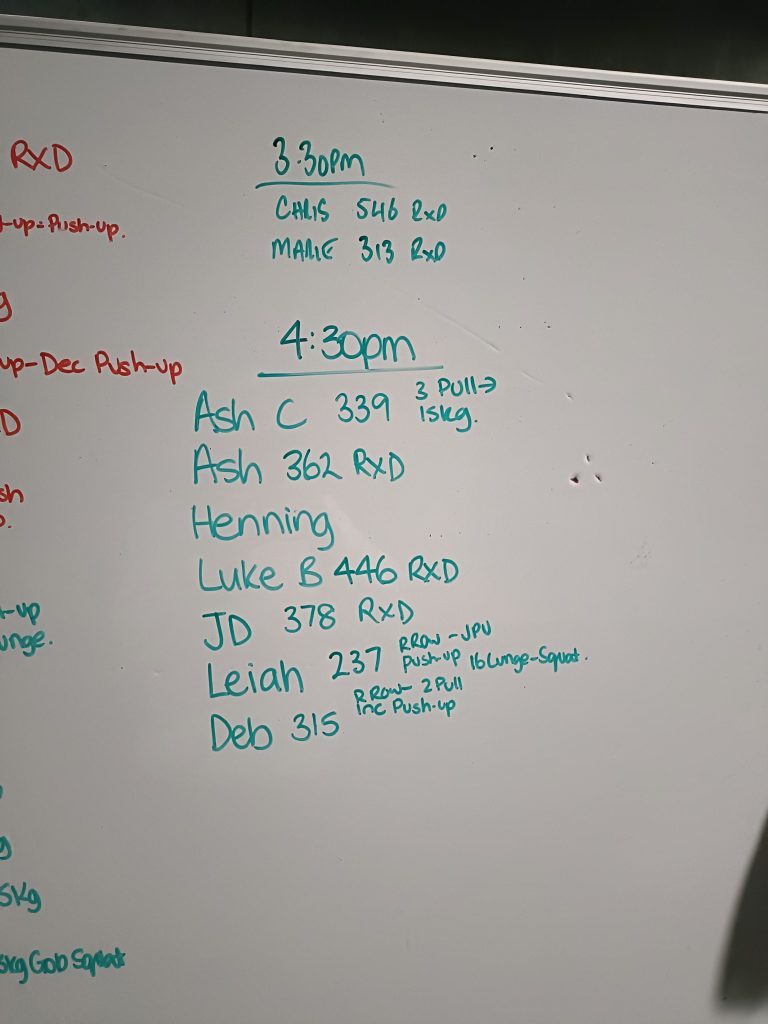 RXD
-up=Push-up.
g
up-Dec Push-up
D
sh
-up
unge.
g
5kg
5kg Gob Squat
3.30pm
CHRIS 546 RXD
MARIE 313 RXD
4:30pm
Ash C 339 3 Pull→
15kg.
Ash 362 RXD
Henning
Luke B 446 RXD
JD 378 RXD
Leiah 237 RRow-JPU
Push-up 16 Lunge-Squat.
Deb 315 RRow- 2 Pull
Inc Push-up